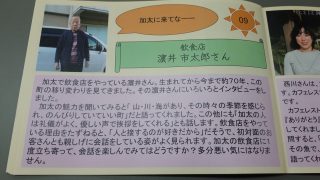 加太に来てなー
09
飲食店
濵井 市太郎さん
加太で飲食店をやっている濵井さん。生まれてから今まで約70年、この
町の移り変わりを見てきました。その濵井さんにいろいろとインタビューを
しました。
加太の魅力を聞いてみると「山・川・海があり、その時々の季節を感じら
れ、のんびりしていていい町」だと語ってくれました。この他にも「加太の人
は礼儀がよく、優しい声で挨拶をしてくれる」とも話します。飲食店をやって
いる理由をたずねると、「人と接するのが好きだから」だそうで、初対面のお
客さんとも親しげに会話をしている姿がよく見られます。加太の飲食店に一
度立ち寄って、会話を楽しんでみてはどうですか？多分悪い気にはなりま
せん。
西川さんは、